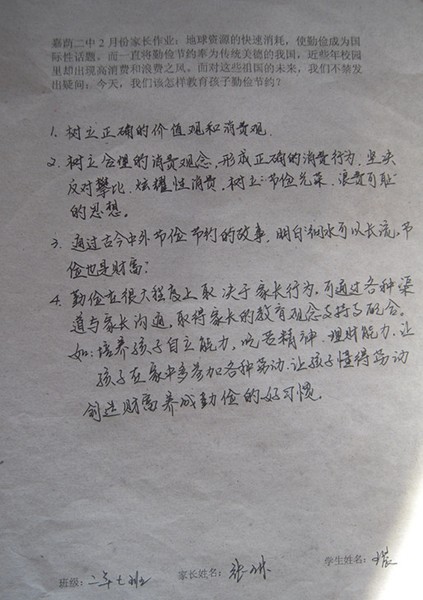 嘉荫二中2月份家长作业：地球资源的快速消耗，使勤俭成为国
际性话题。而一直将勤俭节约奉为传统美德的我国，近些年校园
里却出现高消费和浪费之风。面对这些祖国的未来，我们不禁发
出疑问：今天，我们该怎样教育孩子勤俭节约？
1. 树立正确的价值观和消费观.
2. 树立合理的消费观念,形成正确的消费行为.坚决
反对攀比.炫耀性消费.树立:节俭光荣.浪费可耻
的思想。
3. 通过古今中外节俭节约的故事.明白:细水可以长流,节
俭也是财富;
4. 勤俭在很大程度上取决于家长行为,可通过各种渠
道与家长沟通,取得家长的教育观念支持与配合。
如:培养孩子自立能力,吃苦精神.理财能力.让
孩子在家中多参加各种劳动.让孩子懂得劳动
创造财富养成勤俭的好习惯.
学生姓名：
班级：二年七班 家长姓名：张